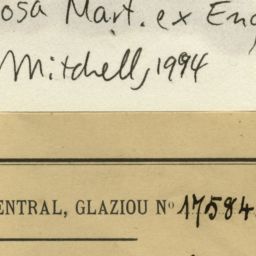 osa Mart. ex Eng
Mitchell, 1994
ENTRAL, GLAZIOU Nº 17584